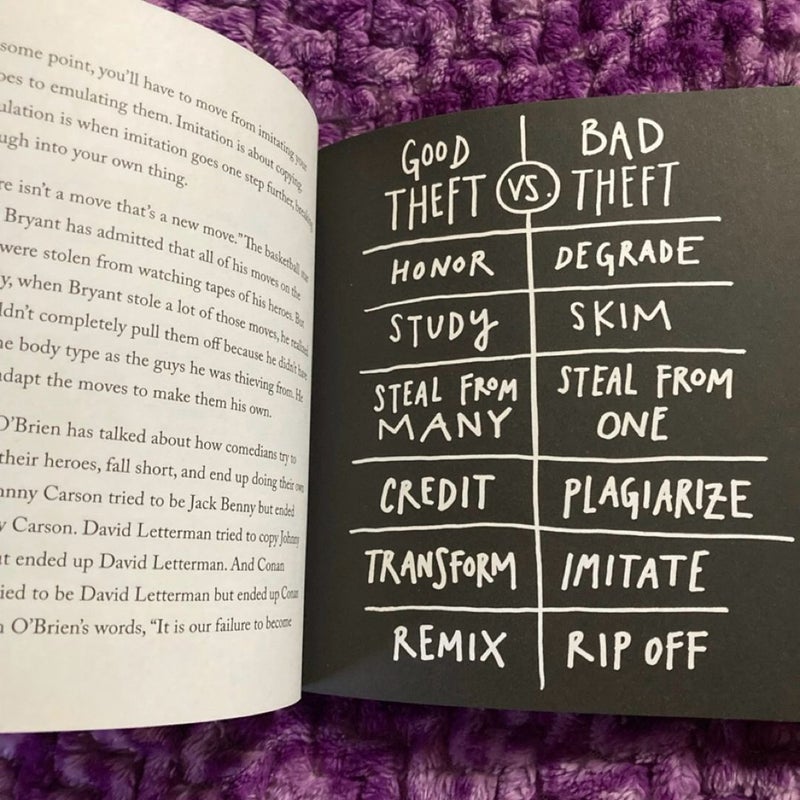 some point, you'll have to move from imitating your
oes to emulating them. Imitation is about copying.
ulation is when imitation goes one step further, breaking
ugh into your own thing.
re isn't a move that's a new move." The basketball star
Bryant has admitted that all of his moves on the
were stolen from watching tapes of his heroes. But
y, when Bryant stole a lot of those moves, he realized
ldn't completely pull them off because he didn't have
e body type as the guys he was thieving from. He
dapt the moves to make them his own.
O'Brien has talked about how comedians try to
their heroes, fall short, and end up doing their own
hnny Carson tried to be Jack Benny but ended
y Carson. David Letterman tried to copy Johnny
t ended up David Letterman. And Conan
ied to be David Letterman but ended up Conan
n O'Brien's words, "It is our failure to become
GOOD THEFT VS. BAD THEFT
HONOR DEGRADE
STUDY SKIM
STEAL FROM MANY STEAL FROM ONE
CREDIT PLAGIARIZE
TRANSFORM IMITATE
REMIX RIP OFF